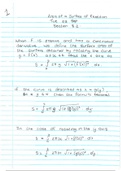 Area of a Surface of Revolution
Section 8.2
When f is positive and has a continuous
derivative, we define the surface area of
the surface obtained by rotating the curve
y = f(x), a ≤ x ≤ b, about the x-axis as
S = ∫ 2π y √1 + [f'(x)]² dx
If the curve is described as x = g(y),
c ≤ y ≤ d, then the formula becomes
S = ∫ 2π y √1 + [g'(y)]² dy
In the case of rotating in the y axis
S = ∫ 2π x √1 + [f'(x)]² dx
S = ∫ 2π x √1 + [g'(y)]² dy